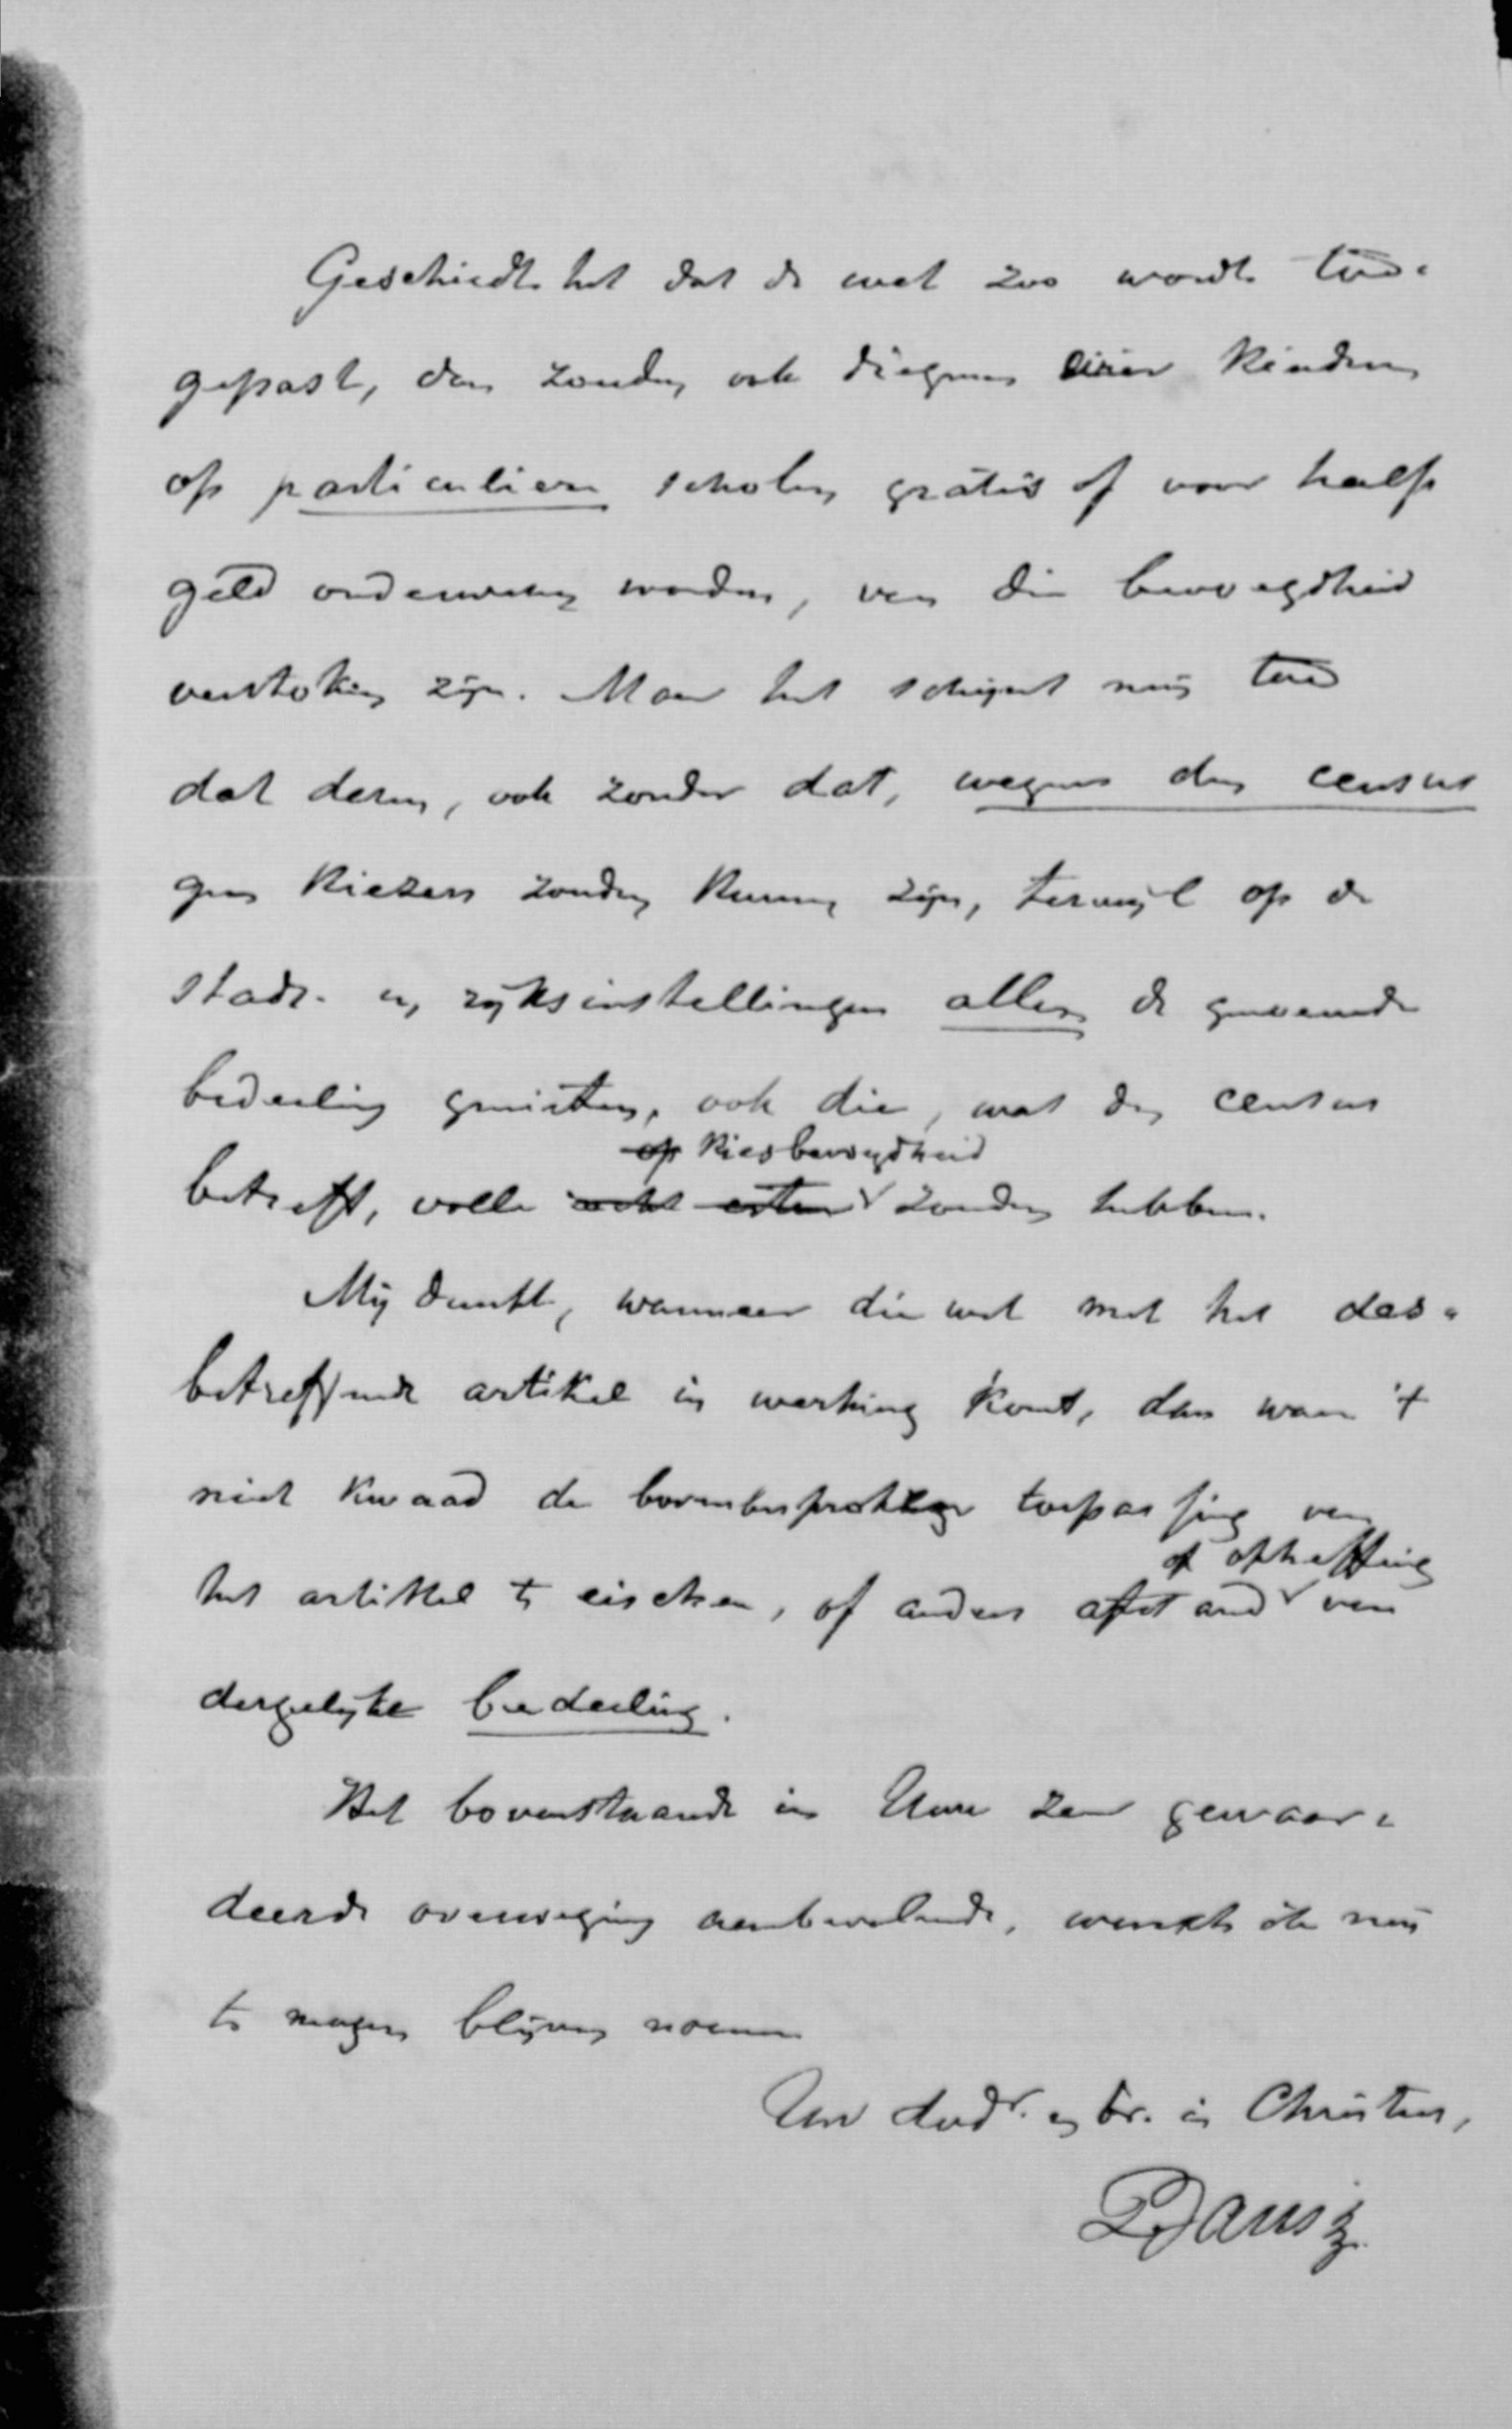 Geschiedt het dat de wet zoo wordt toe-
gepast, dan zouden ook diegenen wier kinderen
op particuliere scholen gratis of voor half
geld onderwezen worden, van die bevoegdheid
verstoken zijn. Maar het schijnt mij toe
dat dezen, ook zonder dat, wegens den census
geen kiezers zouden kunnen zijn, terwijl op de
stads- en rijksinstellingen allen de genoemde
bedeeling genieten, ook die, wat den census
op kiesbevoegdheid
betreft, volle zouden hebben.
Mij dunkt, wanneer die wet met het des-
betreffende artikel in werking komt, dan ware 't
niet kwaad de bovenbesproken toepassing van
of opheffing
het artikel te eischen, of anders afstand van
dergelijke bedeeling.
Het bovenstaande in Uwe zeer gewaar-
deerde overweging aanbevelende, wensch ik mij
te mogen blijven noemen
Uw dwdr. en br. in Christus,